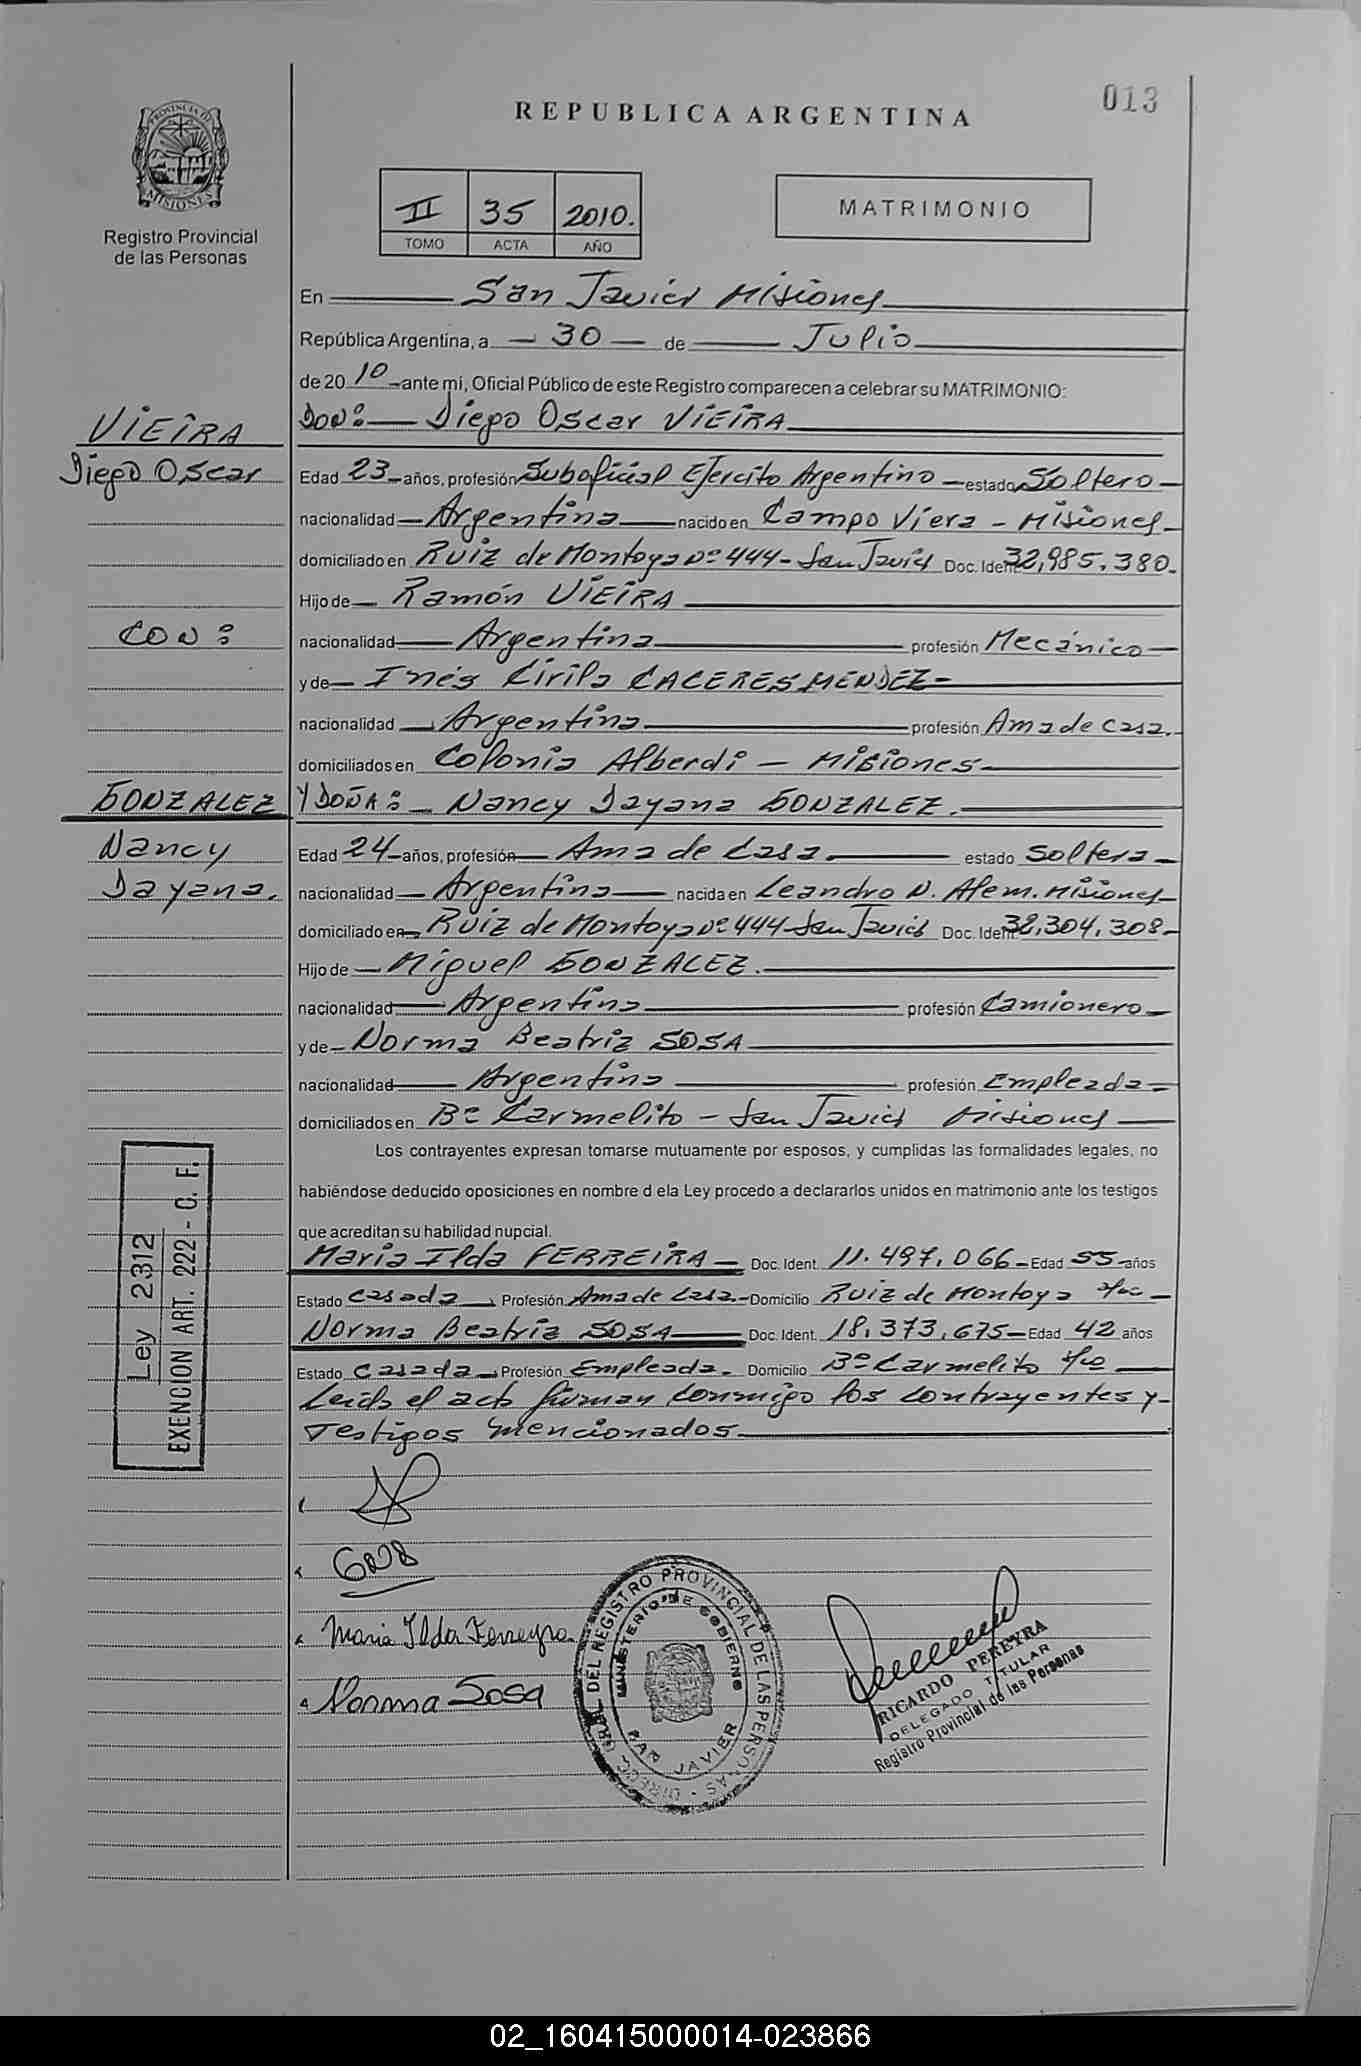 013
REPUBLICA ARGENTINA
PROVINCIA DE
MISIONES
Registro Provincial
de las Personas
II 35 2010.
TOMO ACTA AÑO
MATRIMONIO
En San Javier Misiones
República Argentina, a 30 de Julio
de 20 10 ante mí, Oficial Público de este Registro comparecen a celebrar su MATRIMONIO:
VIEIRA
DON: Diego Oscar VIEIRA
Diego Oscar
Edad 23 años, profesión Suboficial Ejercito Argentino estado Soltero
nacionalidad Argentina nacido en Campo Viera - Misiones
domiciliado en Ruiz de Montoya Nº 444 - San Javier Doc. Ident. 32,985.380
Hijo de Ramón VIEIRA
CON:
nacionalidad Argentina profesión Mecánico
y de Inés Cirila CACERES MENDEZ
nacionalidad Argentina profesión Ama de Casa.
domiciliados en Colonia Alberdi - MISIONES
GONZALEZ
Y DOÑA: Nancy Dayana GONZALEZ.
Nancy
Dayana.
Edad 24 años, profesión Ama de Casa. estado Soltera
nacionalidad Argentina nacida en Leandro N. Alem. Misiones
domiciliado en Ruiz de Montoya Nº 444 San Javier Doc. Ident. 32.304.308
Hijo de Miguel GONZALEZ.
nacionalidad Argentina profesión Camionero
y de Norma Beatriz SOSA
nacionalidad Argentina profesión Empleada
domiciliados en Bº Carmelito - San Javier Misiones
Los contrayentes expresan tomarse mutuamente por esposos, y cumplidas las formalidades legales, no
habiéndose deducido oposiciones en nombre d ela Ley procedo a declararlos unidos en matrimonio ante los testigos
que acreditan su habilidad nupcial.
Maria Ilda FERREIRA Doc. Ident. 11.497.066 Edad 55 años
Estado Casada Profesión Ama de Casa. Domicilio Ruiz de Montoya
Norma Beatriz SOSA Doc. Ident. 18.373,675 Edad 42 años
Estado Casada Profesión Empleada. Domicilio Bº Carmelito
Leida el acta firman conmigo los contrayentes y
Testigos mencionados
Ley 2312
EXENCION ART. 222 - C. F.
Maria Ilda Ferreyra
Norma Sosa
DIRECC. GRAL. DEL REGISTRO PROVINCIAL DE LAS PERSONAS
MINISTERIO DE GOBIERNO
SAN JAVIER
RICARDO PEREYRA
DELEGADO TITULAR
Registro Provincial de las Personas
02_160415000014-023866